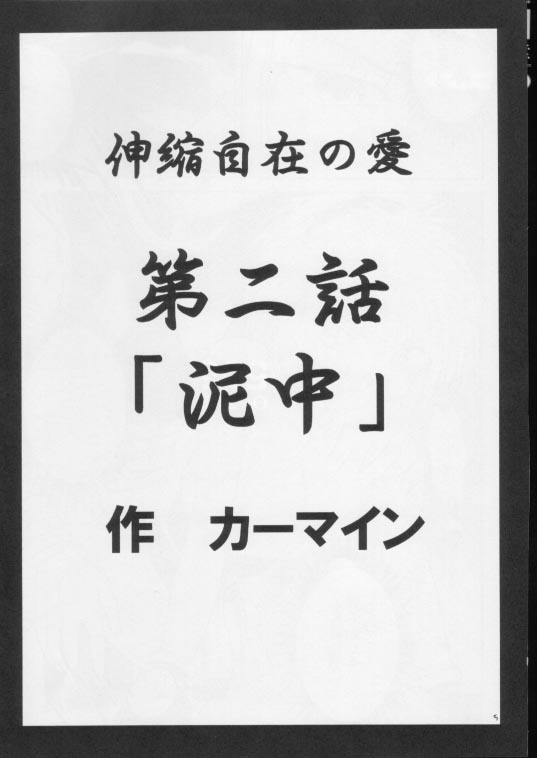 伸縮自在の愛
第二話
「泥中」
作　カーマイン
5